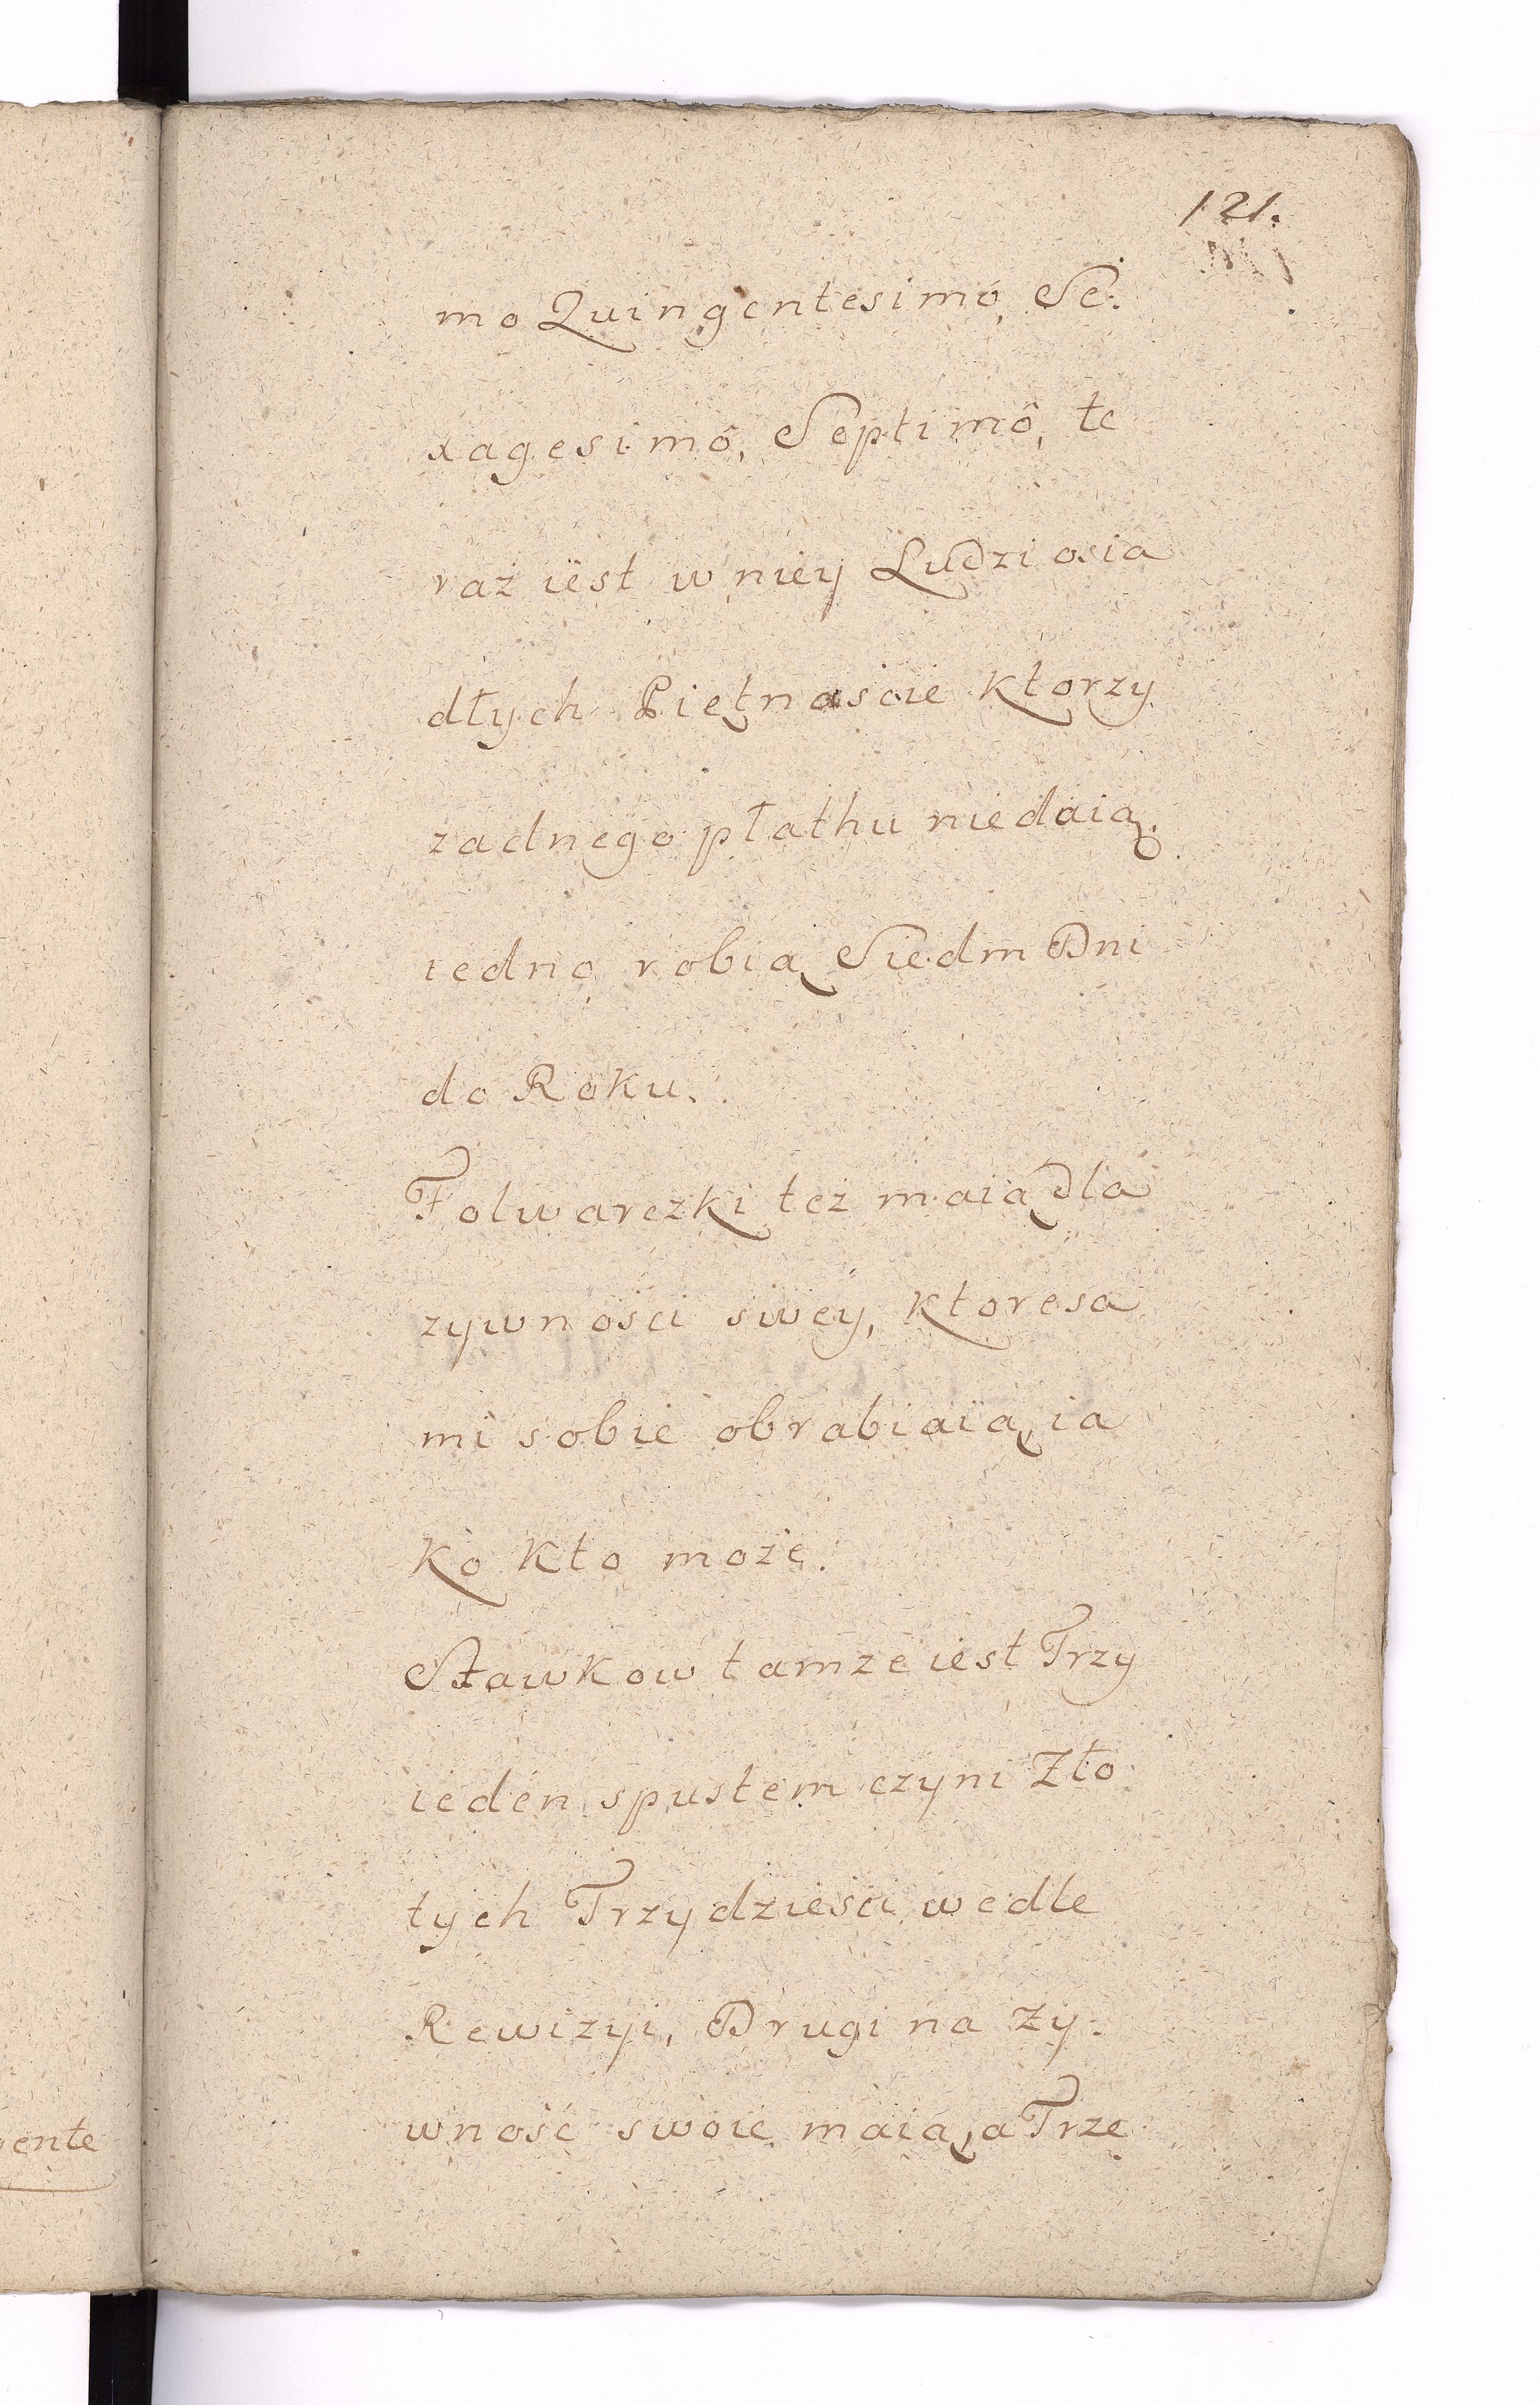 121.
mo Quingentesimo, Se:
xagesimô, Septimô, te
raz iest w niey Ludzi osia
dłych Piętnascie ktorzy
zadnego płathu niedaią.
iedno robią Siedm Dni
do Roku.
Folwarczki też maią dla
zywności swey, ktore sa
mi sobie obrabiaią, ia
ko kto może.
Stawkow tamze iest Trzy
ieden spustem czyni Zło
tych Trzydzieści wedle
Rewizyi, Drugi na Zy:
wność swoię maią, a Trze
ente